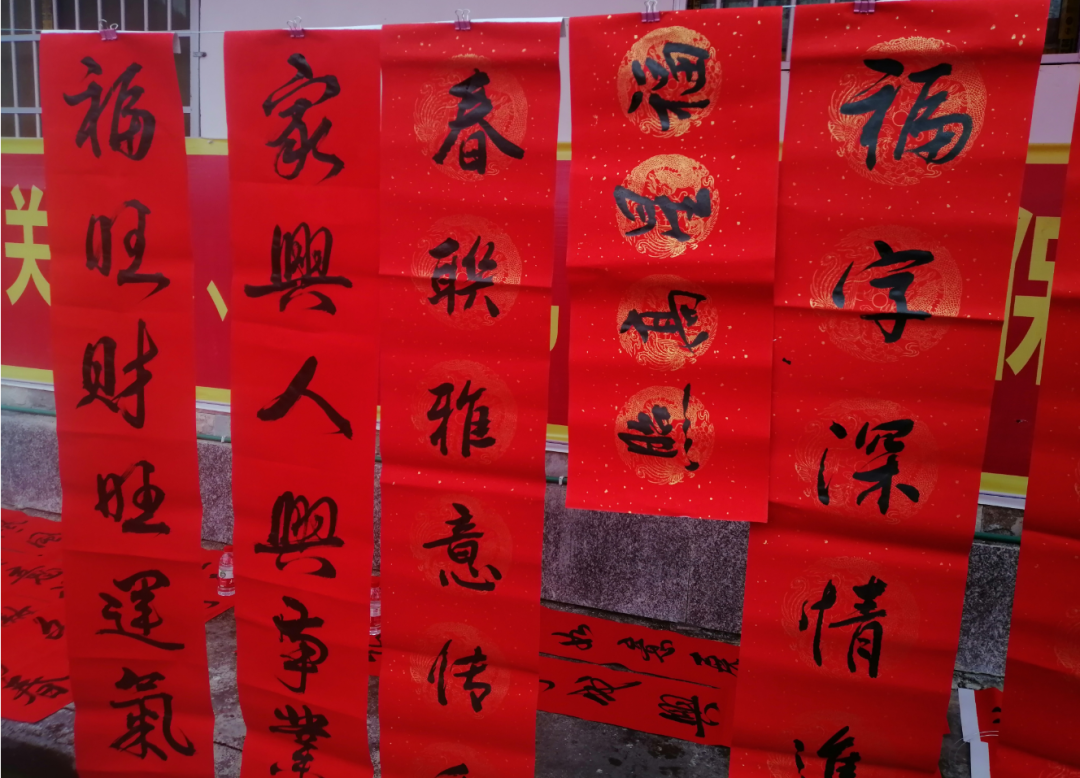 福旺财旺運氣
家興人興事業
春联雅意传
福星高照
福字深情
关